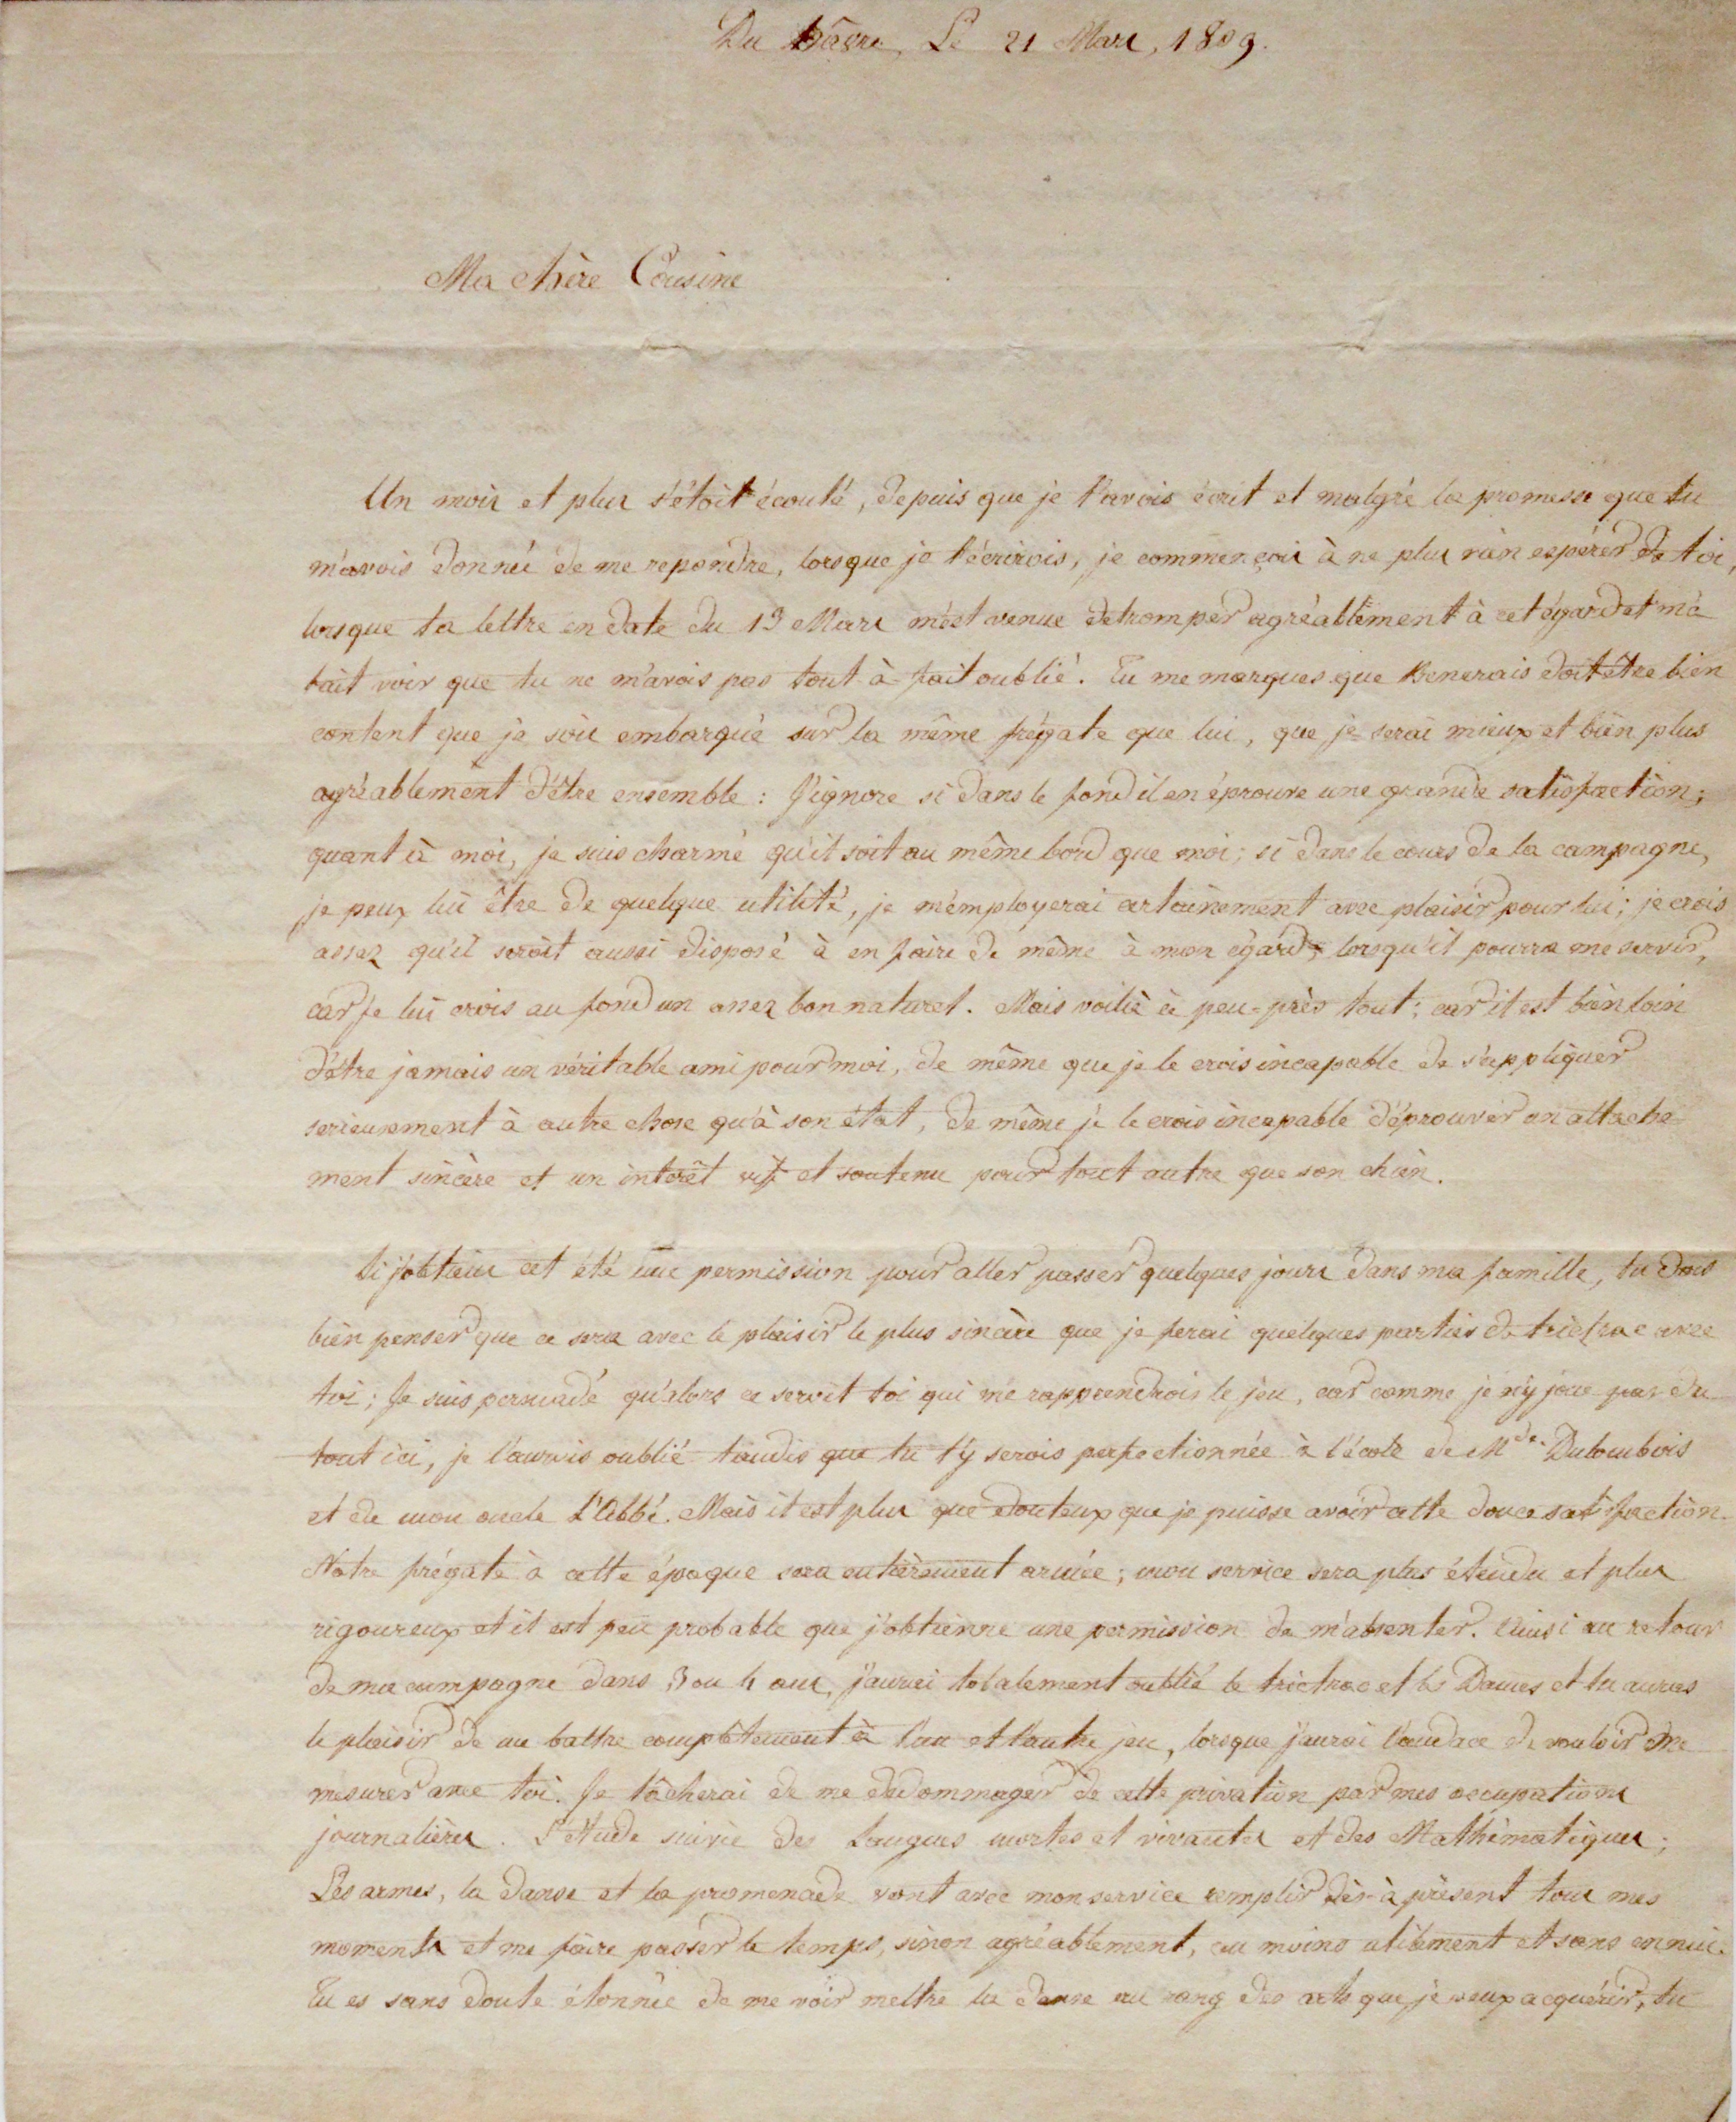 Du hâvre, Le 21 Mars, 1809.
Ma chère Cousine
Un mois et plus s'étoit écoulé, depuis que je t'avois écrit et malgré la promesse que tu
m'avois donné de me repondre, lorsque je t'écrirois, je commençois à ne plus rien espérer de toi,
lorsque ta lettre en date du 13 Mars m'est venue detromper agréablement à cet égard et m'a
fait voir que tu ne m'avois pas tout à fait oublié. Tu me marques que Benerais doit être bien
content que je sois embarqué sur la même frégate que lui, que je serai mieux et bien plus
agréablement d'être ensemble : J'ignore si dans le fond il en éprouve une grande satisfaction;
quant à moi, je suis charmé qu'il soit au même bord que moi; si dans le cours de la campagne,
je peux lui être de quelque utilité, je m'employerai certainement avec plaisir pour lui; je crois
assez qu'il seroit aussi disposé à en faire de même à mon égard, lorsqu'il pourra me servir,
car je lui crois au fond un assez bon naturel. Mais voilà à peu-près tout; car il est bien loin
d'être jamais un véritable ami pour moi, de même que je le crois incapable de s'appliquer
serieusement à autre chose qu'à son état, de même je le crois incapable d'éprouver un attache-
ment sincère et un intérêt vif et soutenu pour tout autre que son chien.
Si j'obtiens cet été une permission pour aller passer quelques jours dans ma famille, tu dois
bien penser que ce sera avec le plaisir le plus sincère que je ferai quelques parties de trictrac avec
toi; Je suis persuadé qu'alors ce seroit toi qui me rapprendrois le jeu, car comme je n'y joue pas du
tout ici, je l'aurois oublié tandis que tu t'y serois perfectionnée à l'école de Mde. Dulombois
et de mon oncle L'Abbé. Mais il est plus que douteux que je puisse avoir cette douce satisfaction.
Notre frégate à cette époque sera entièrement armée; mon service sera plus étendu et plus
rigoureux et il est peu probable que j'obtienne une permission de m'absenter. Ainsi au retour
de ma campagne dans 3 ou 4 ans, j'aurai totalement oublié le trictrac et les Dames et tu auras
le plaisir de me battre complètement à l'un et l'autre jeu, lorsque j'aurai l'audace de vouloir me
mesurer avec toi. Je tâcherai de me dedommager de cette privation par mes occupations
journalières. L'étude suivie des Langues mortes et vivantes et des Mathématiques;
Les armes, la danse et la promenade vont avec mon service remplir dès-à présent tous mes
moments et me faire passer le temps, sinon agréablement, au moins utilement et sans ennui.
Tu es sans doute étonnée de me voir mettre la danse au rang des arts que je veux acquérir, tu